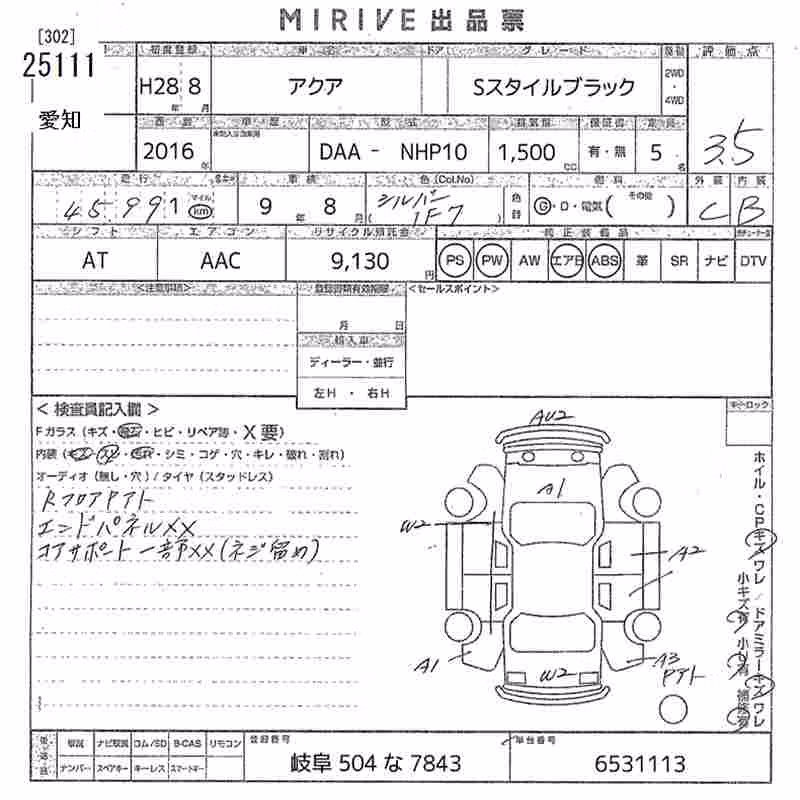 MIRIVE出品票
[302]
25111
愛知
初度登録 車名 ドア グレード 評価点
H28 8 アクア Sスタイルブラック 2WD・4WD
年 月
車歴 型式 排気量 保証書 定員
2016年 DAA - NHP10 1,500cc 有・無 5名 3.5
走行 車検 色(Col.No) 燃料 外装 内装
45991 マイル km 9年 8月 シルバー 1F7 色替 G・D・電気( その他 ) C B
シフト エアコン リサイクル預託金 純正装備品
AT AAC 9,130円 PS PW AW エアB ABS 革 SR ナビ DTV
<注意事項> 登録書類有効期限 <セールスポイント>
月 日
輸入車
ディーラー・並行
左H・右H
<検査員記入欄> キーロック
Fガラス(キズ・飛石・ヒビ・リペア跡・X要)
内装(キズ・スレ・汚れ・シミ・コゲ・穴・キレ・破れ・割れ)
オーディオ(無し・穴)/タイヤ(スタッドレス)
RフロアPアト
エンドパネルXX
コアサポート一部XX(ネジ留め)
AU2
A1
W2
A2
A1
W2
A3
Pアト
ホイル・CPキズワレ/ドアミラーキズワレ
小キズ有 小U有 補修有
取説 ナビ取説 ロム/SD B-CAS リモコン 登録番号 車台番号
ナンバー スペアキー キーレス スマートキー 岐阜 504 な 7843 6531113